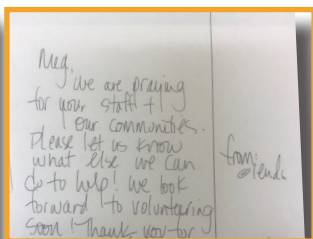 Meg,
we are praying
for your staff +
our communities.
Please let us know
what else we can
do to help! We look
forward to volunteering
soon! Thank you for
from: